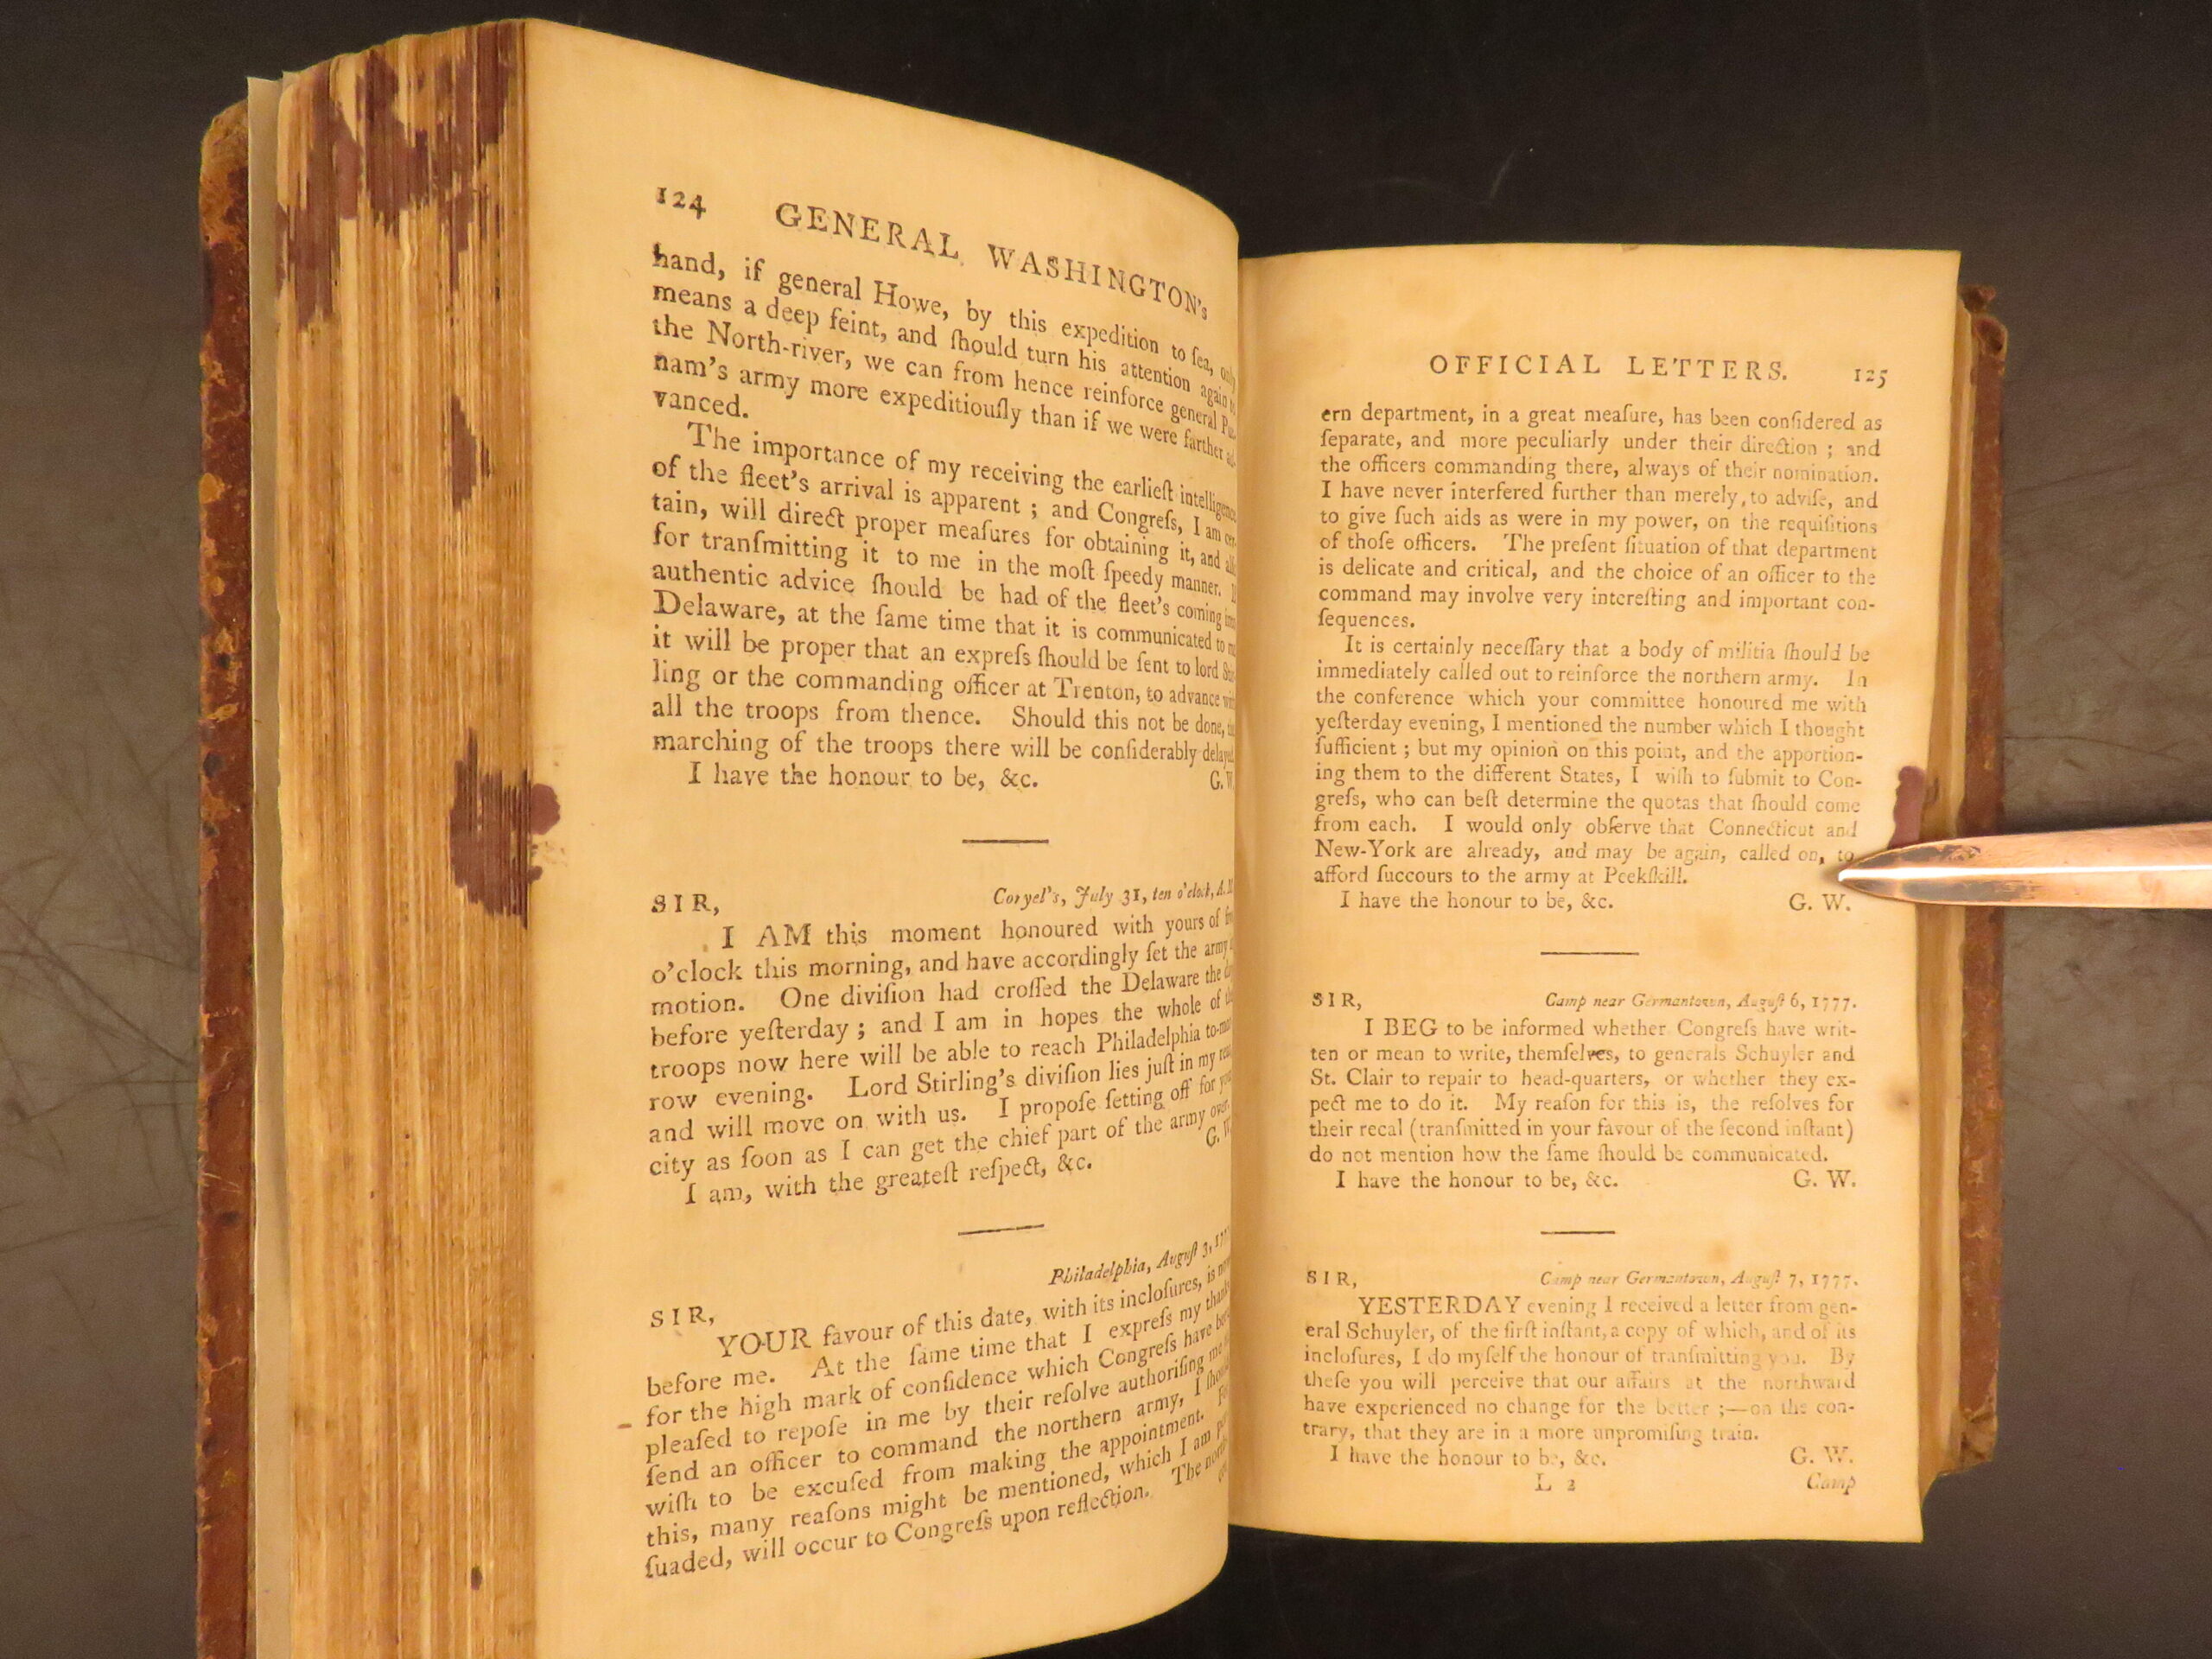 124 GENERAL WASHINGTON's
hand, if general Howe, by this expedition to ſea, only
means a deep feint, and ſhould turn his attention again
the North-river, we can from hence reinforce general
nam's army more expeditiouſly than if we were farther
vanced.
The importance of my receiving the earlieſt intelligence
of the fleet's arrival is apparent ; and Congreſs, I am
tain, will direct proper meaſures for obtaining it, and
for tranſmitting it to me in the moſt ſpeedy manner.
authentic advice ſhould be had of the fleet's coming
Delaware, at the ſame time that it is communicated to
it will be proper that an expreſs ſhould be ſent to lord
ling or the commanding officer at Trenton, to advance
all the troops from thence. Should this not be done,
marching of the troops there will be conſiderably delayed
I have the honour to be, &c. G. W.
SIR, Coryel's, July 31, ten o'clock, A.
I AM this moment honoured with yours of
o'clock this morning, and have accordingly ſet the army
motion. One diviſion had croſſed the Delaware the
before yeſterday ; and I am in hopes the whole of
troops now here will be able to reach Philadelphia to-mor
row evening. Lord Stirling's diviſion lies juſt in my
and will move on with us. I propoſe ſetting off for
city as ſoon as I can get the chief part of the army over.
I am, with the greateſt reſpect, &c. G. W.
Philadelphia, Auguſt 3,
SIR,
YOUR favour of this date, with its incloſures, is
before me. At the ſame time that I expreſs my thanks
for the high mark of confidence which Congreſs have
pleaſed to repoſe in me by their reſolve authoriſing me
ſend an officer to command the northern army, I
wiſh to be excuſed from making the appointment.
this, many reaſons might be mentioned, which I am
ſuaded, will occur to Congreſs upon reflection. The
OFFICIAL LETTERS. 125
ern department, in a great meaſure, has been conſidered as
ſeparate, and more peculiarly under their direction ; and
the officers commanding there, always of their nomination.
I have never interfered further than merely, to adviſe, and
to give ſuch aids as were in my power, on the requiſitions
of thoſe officers. The preſent ſituation of that department
is delicate and critical, and the choice of an officer to the
command may involve very intereſting and important con-
ſequences.
It is certainly neceſſary that a body of militia ſhould be
immediately called out to reinforce the northern army. In
the conference which your committee honoured me with
yeſterday evening, I mentioned the number which I thought
ſufficient ; but my opinion on this point, and the apportion-
ing them to the different States, I wiſh to ſubmit to Con-
greſs, who can beſt determine the quotas that ſhould come
from each. I would only obſerve that Connecticut and
New-York are already, and may be again, called on, to
afford ſuccours to the army at Peekſkill.
I have the honour to be, &c. G. W.
SIR, Camp near Germantown, Auguſt 6, 1777.
I BEG to be informed whether Congreſs have writ-
ten or mean to write, themſelves, to generals Schuyler and
St. Clair to repair to head-quarters, or whether they ex-
pect me to do it. My reaſon for this is, the reſolves for
their recal (tranſmitted in your favour of the ſecond inſtant)
do not mention how the ſame ſhould be communicated.
I have the honour to be, &c. G. W.
SIR, Camp near Germantown, Auguſt 7, 1777.
YESTERDAY evening I received a letter from gen-
eral Schuyler, of the firſt inſtant, a copy of which, and of its
incloſures, I do myſelf the honour of tranſmitting you. By
theſe you will perceive that our affairs at the northward
have experienced no change for the better ;—on the con-
trary, that they are in a more unpromiſing train.
I have the honour to be, &c. G. W.
L 2 Camp